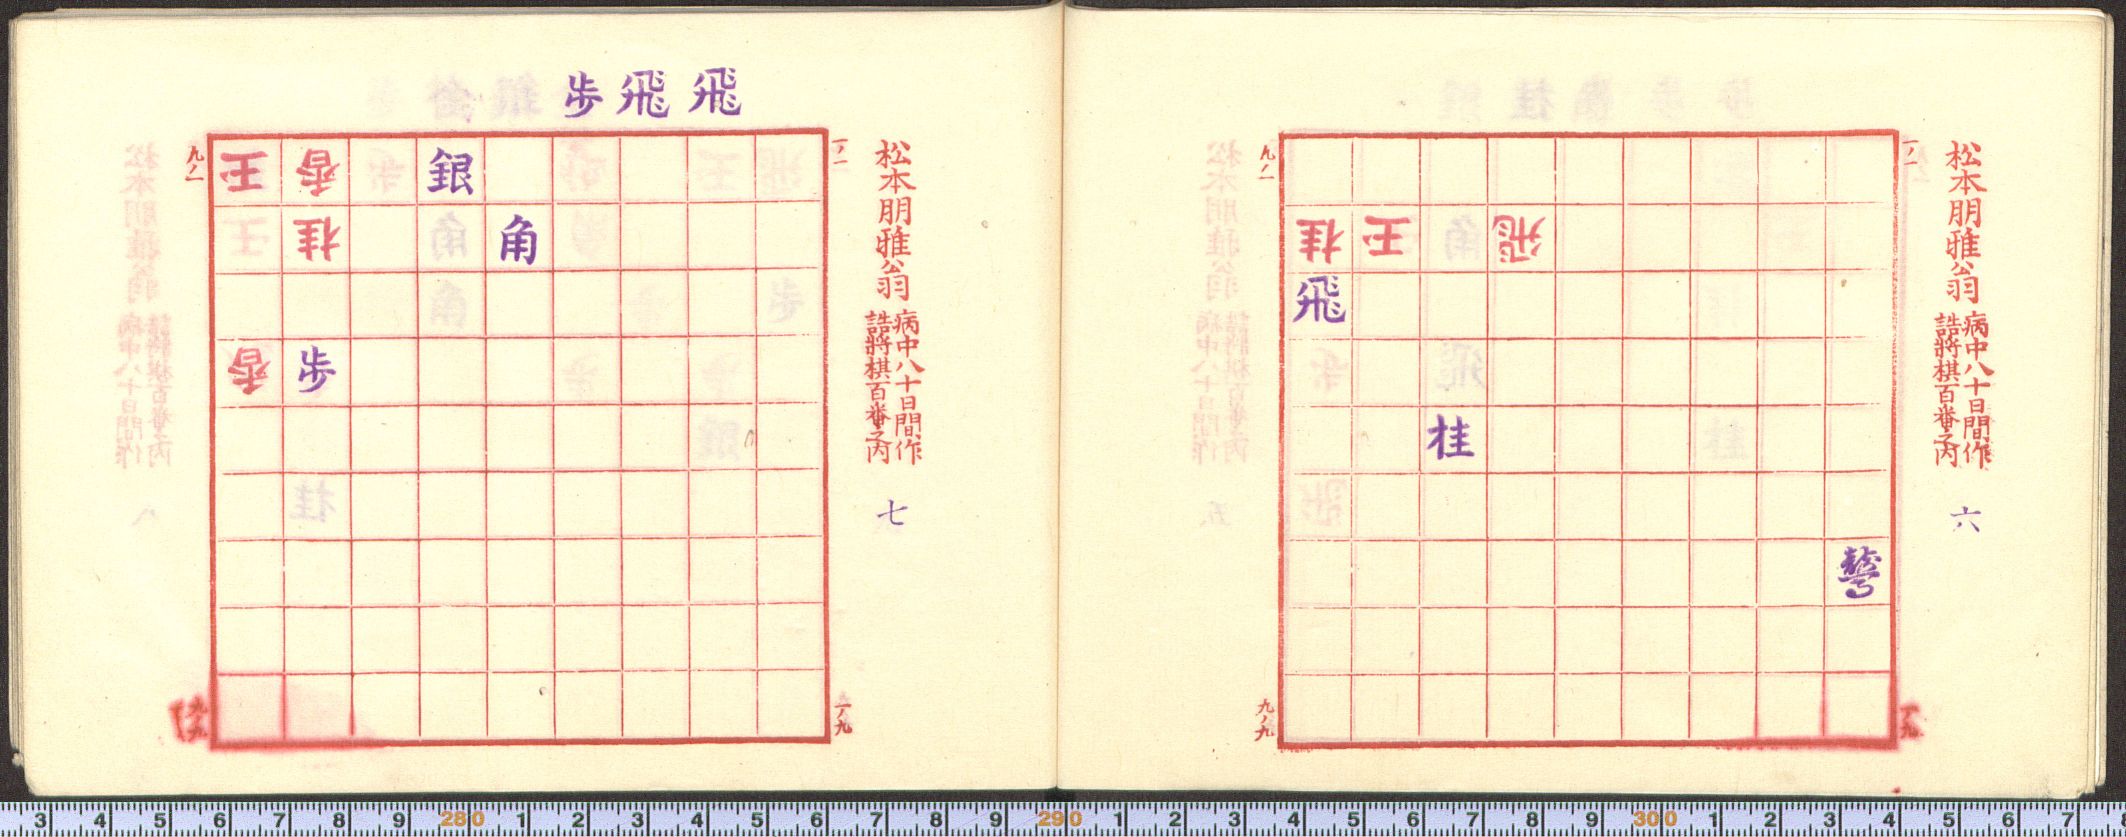 松本朋雅翁
病中八十日間作
詰將棋百番之内
六
一ノ一
九ノ一
桂 王 飛
飛
桂
一ノ九
九ノ九
松本朋雅翁
病中八十日間作
詰將棋百番之内
七
飛 飛 歩
一ノ一
九ノ一
王 香 銀
桂 角
香 歩
一ノ九
九ノ九
3 4 5 6 7 8 9 280 1 2 3 4 5 6 7 8 9 290 1 2 3 4 5 6 7 8 9 300 1 2 3 4 5 6 7